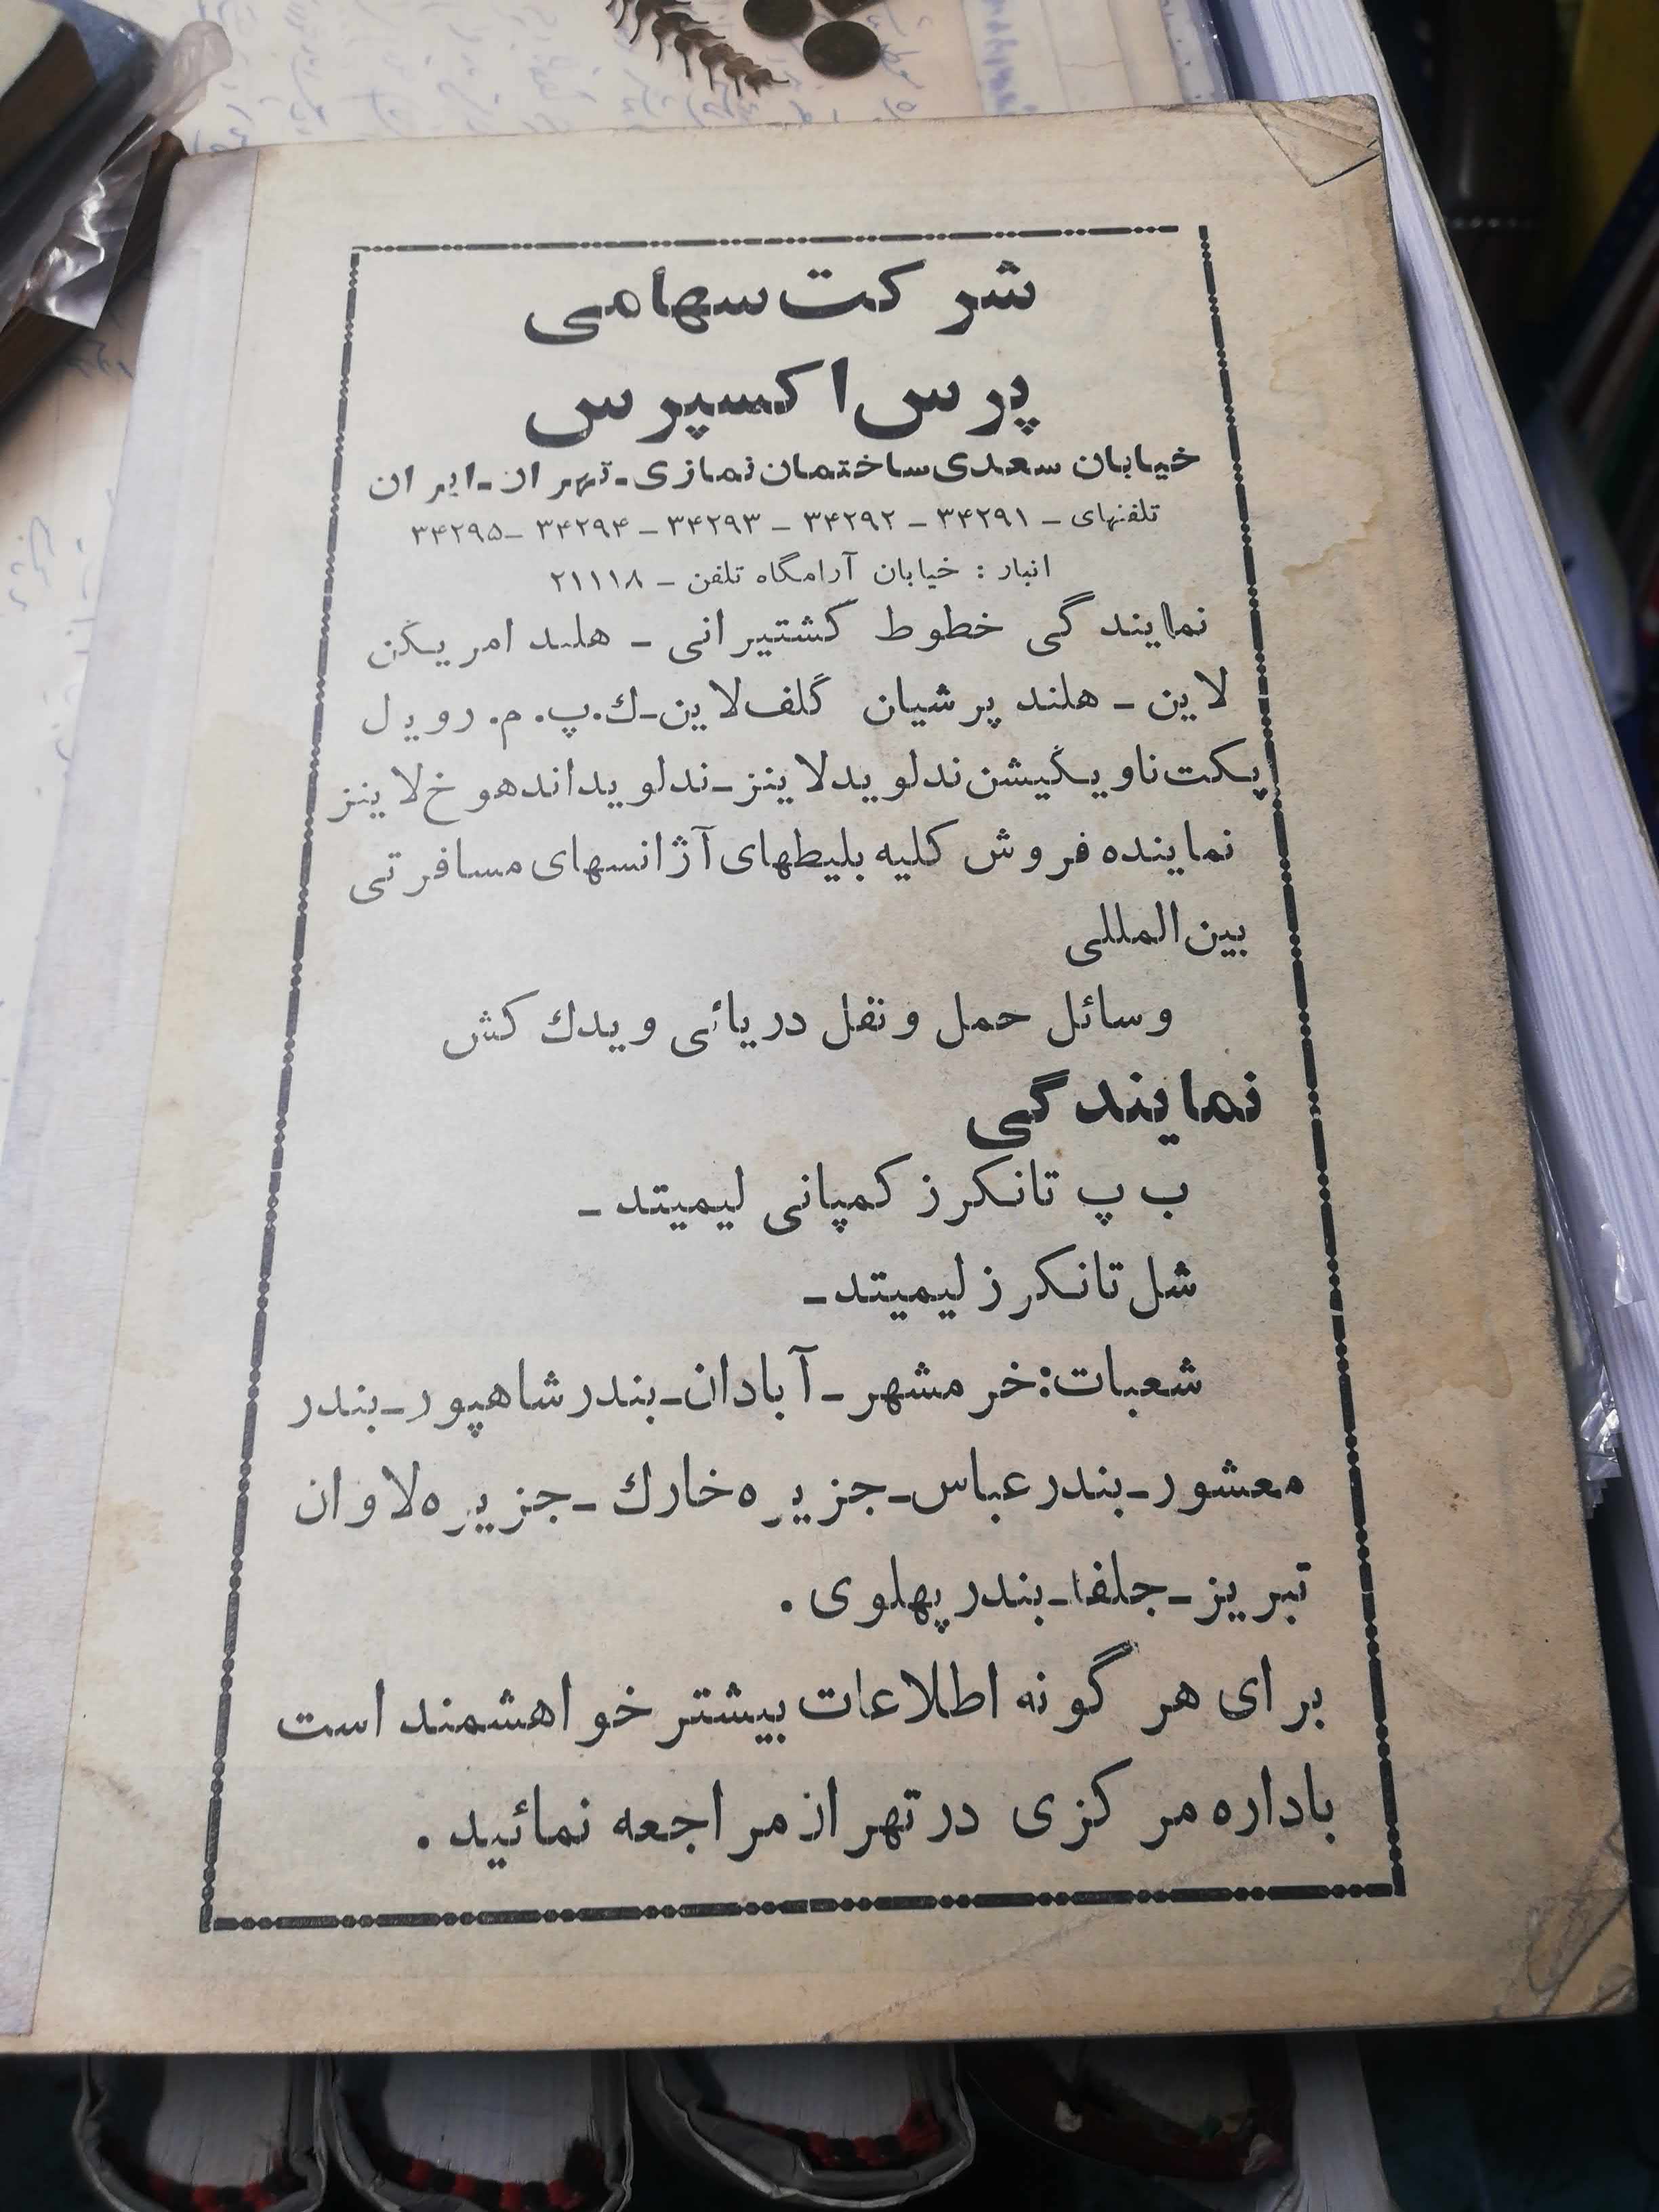 شرکت سهامی
پرس اکسپرس
خیابان سعدی ساختمان نمازی - تهران - ایران
تلفنهای - ۳۴۲۹۱ - ۳۴۲۹۲ - ۳۴۲۹۳ - ۳۴۲۹۴ - ۳۴۲۹۵
انبار : خیابان آرامگاه تلفن - ۲۱۱۱۸
نمایندگی خطوط کشتیرانی - هلند امریکن
لاین - هلند پرشیان گلف لاین - ك.پ.م. رویل
پکت ناویگیشن ندلوید لاینز - ندلوید اند هوخ لاینز
نماینده فروش کلیه بلیطهای آژانسهای مسافرتی
بین‌المللی
وسائل حمل و نقل دریائی و یدك کش
نمایندگی
ب پ تانکرز کمپانی لیمیتد -
شل تانکرز لیمیتد -
شعبات: خرمشهر - آبادان - بندر شاهپور - بندر
معشور - بندر عباس - جزیره خارك - جزیره لاوان
تبریز - جلفا - بندر پهلوی .
برای هر گونه اطلاعات بیشتر خواهشمند است
باداره مرکزی در تهران مراجعه نمائید .